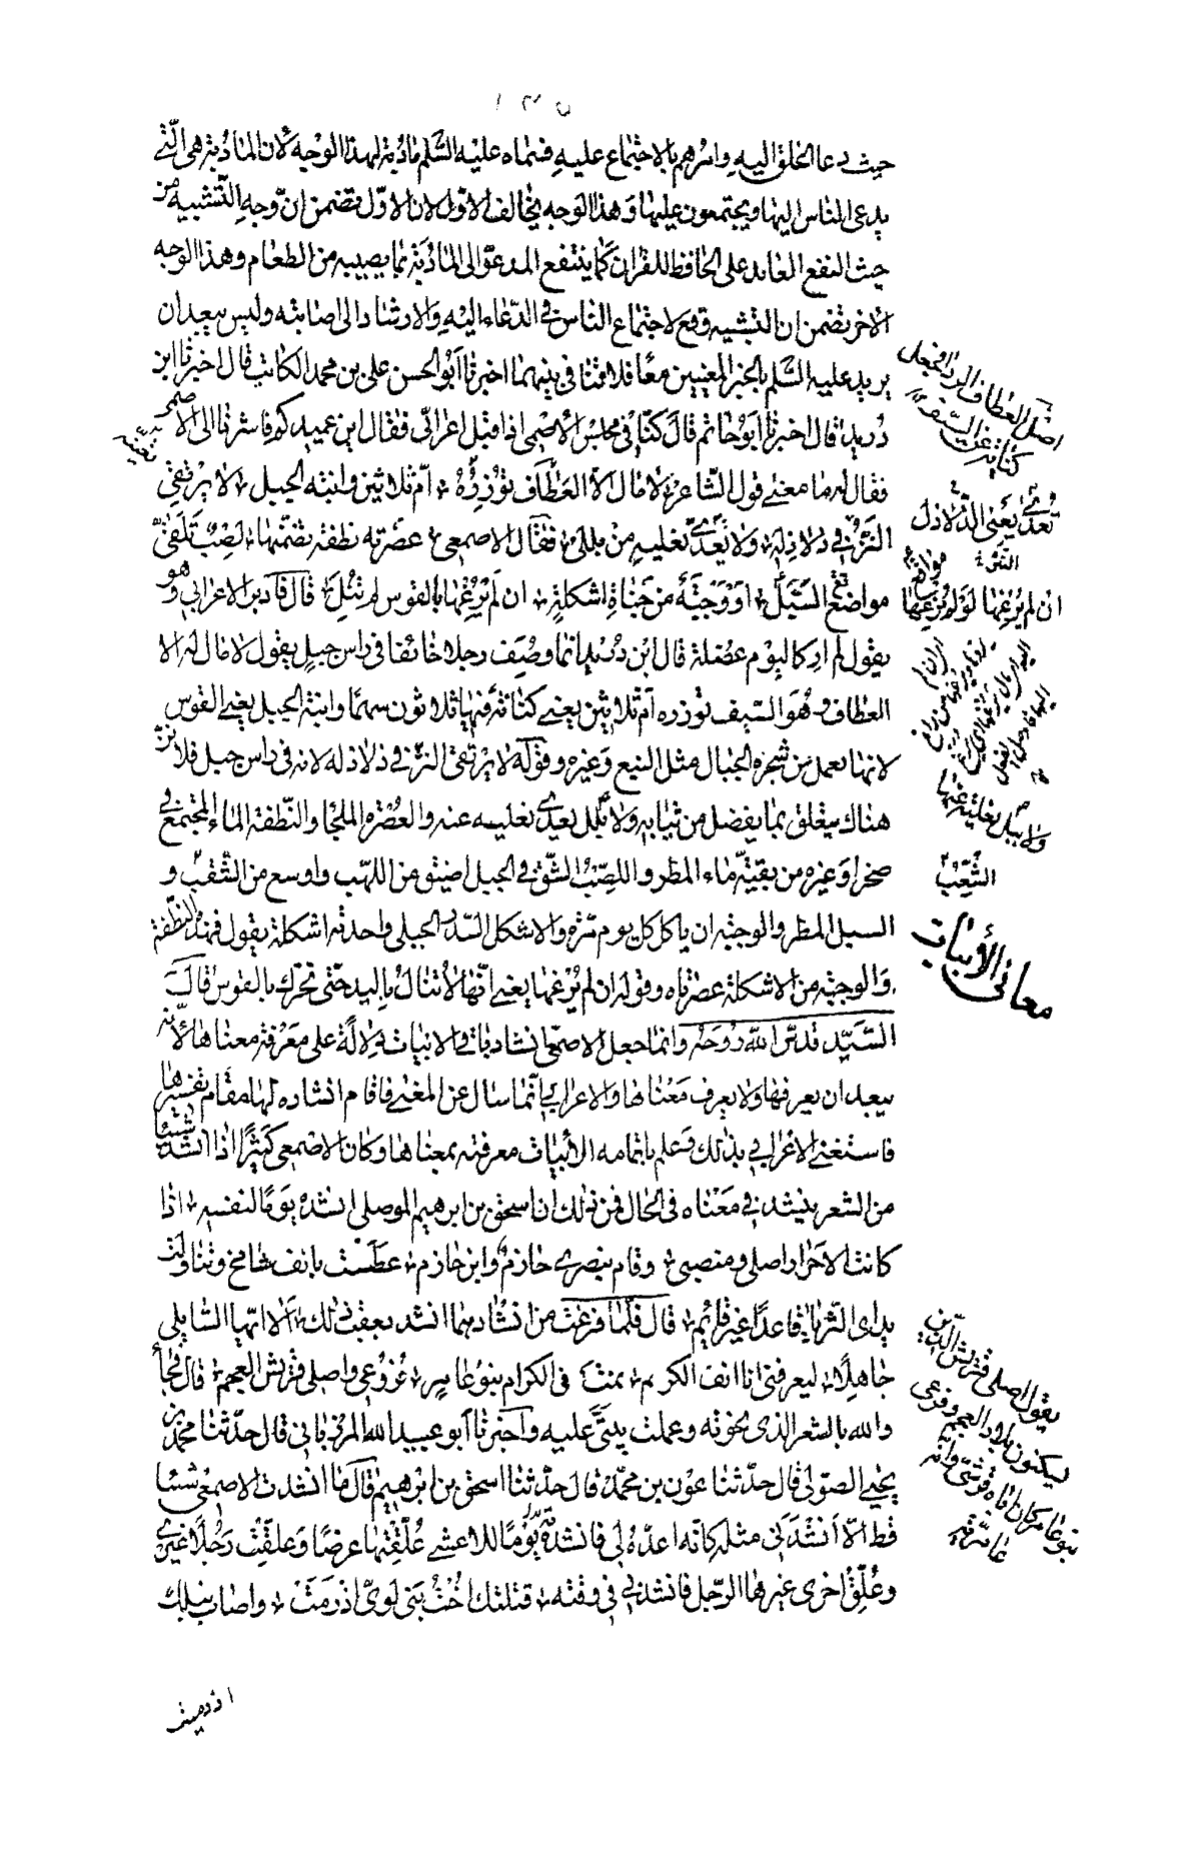 ١٣٥
حيث دعا الخلق اليه وامرهم بالاجتماع عليه فسماه عليه السّلم مأدُبة لهذا الوجه لأن المأدُبة هى الّتى
يدعى الناس اليها ويجتمعون عليها وهذا الوجه يخالف الاوّل لان الاوّل تضمن انّ وجه التشبيه من
حيث النفع العايد على الحافظ للقران كما ينتفع المدعوّ الى المأدُبة بما يصيبه من الطعام وهذا الوجه
الاخر تضمن ان التشبيه وقع لاجتماع الناس فى الدّعاء اليه والارشاد الى اصابته وليس ببعيد ان
يريد عليه السّلم بالخبر المعنيين معًا فلا تنافى بينهما اخبرنا ابُو الحسن على بن محمد الكاتب قال اخبرنا ابن
دُريد قال اخبرنا ابَوُ حاتم قال كنّا فى مجلس الأصمعى اذا اقبل اعرابىّ فقال اين عميدكم فاشرنا الى الاصمعى
فقال له ما معنى قول الشّاعر لا مال الّا العطاف تؤزره ام ثلاثين وابنة الجبل لا يرتقى
النزّ فى ذلاذله ولا يُعَدّى نعليه من بلل فقال الاصمعى عصرته نطفة تضمّنها لصبٌ تلقّى
مواضع السّبَل او وَجبَةٌ من جَناة اشكلةٍ ان لم يُرغها بالقوس لم تُنل قال فادبر الاعرابى وهو
يقول لم ار كاليوم عضلة قال ابن دُريد انما وصَف رجلا خائفا فى راس جبلٍ يقول لا مال له الا
العطاف وهُوَ السّيف تؤزره ام ثلاثين يعنى كنانة فيها ثلاثون سهمًا وابنة الجبل يعنى القوس
لانها تعمل من شجر الجبال مثل النبع وغيره وقوله لا يرتقى النزّ فى ذلاذله لانه فى راس جبل فلا نزّ
هناك يتعلق بما يفضل من ثيابه ولا بلل يعدّى نعليه عنه والعُصْرة الملجا والنّطفة الماء المجتمع فى
صخر او غيره من بقيّة ماء المطر واللصبُ الشّق فى الجبل اضيق من اللهب واوسع من الشقب و
السبل المطر والوجبة ان ياكل كل يوم مرّة والاشكل السّدر الجبلى واحدته اشكلة يقول فهذه النطفة
والوجبة من الاشكلة عصرتاه وقوله ان لم يُرغها يعنى انّها لا تنال باليد حتى تحرّك بالقوس قال
السَّيّد قدسّ اللهّ رُوحَه وانما جعل الاصمعى انشاد باقى الابيات دلالة على معرفة معناها لأنّه
يبعد ان يعرفها ولا يعرف مَعْناها والاعرابى انّما سال عن المعنى فاقام انشاده لها مقام تفسيرها
فاستغنى الاعرابى بذلك وعلم باتمامه الأبيات معرفته بمعناها وكان الاصمعى كثيرًا اذا انشد شيئا
من الشعر ينشد فى مَعْناه فى الحال فمن ذلك ان اسحق بن ابرهيم الموصلى انشده يَومًا لنفسه اذا
كانت الاحرار اصلى ومنصبى وقام بنصرى خازمٌ وابن خازم عطَسْت بانف شامخ وتناولت
يداى الثّريا قاعدًا غير قائم قال فلمّا فرغت من انشادهما انشد بعقب ذلك الا ايّها السّايلى
جاهلًا ليعرفنى انا انف الكرم نمت فى الكرام بنو عامر فروعى واصلى قريش العجم قال فجاء
والله بالشعر الذى نحوته وعملت بيتىّ عليه واخبرنا ابو عبيد الله المرزبانى قال حدّثنا محمد بن
يحيى الصّولى قال حدّثنا عون بن محمّد قال حدّثنا اسحق بن ابرهيم قال ما انشدت الاصمعى شيئا
قط الّا أنشدَنى مثله كانّه اعدّه لى فانشدته يومًا للاعشى عُلّقتُها عرضًا وَعلقت رَجُلًا غيرى
وعُلّق اخرى غيرها الرّجل فانشدنى فى وقته قتلتك اخْتُ بَنى لوىّ اذ رمَتْ واصاب نبلك
اذ رميت
اصل العطاف الرداء فجعل
كناية عن السّيف
تعدّى يعنى الذلاذل
النّزّ
مواقع
ان لم يُرغها لو لم يُرغها
ولا بلل نعليه عنها
الشّعْبُ
معانى الأبيات
يقول اصلى قريش الذين
يسكنون بلاد العجم وفروعى
بنو عامر